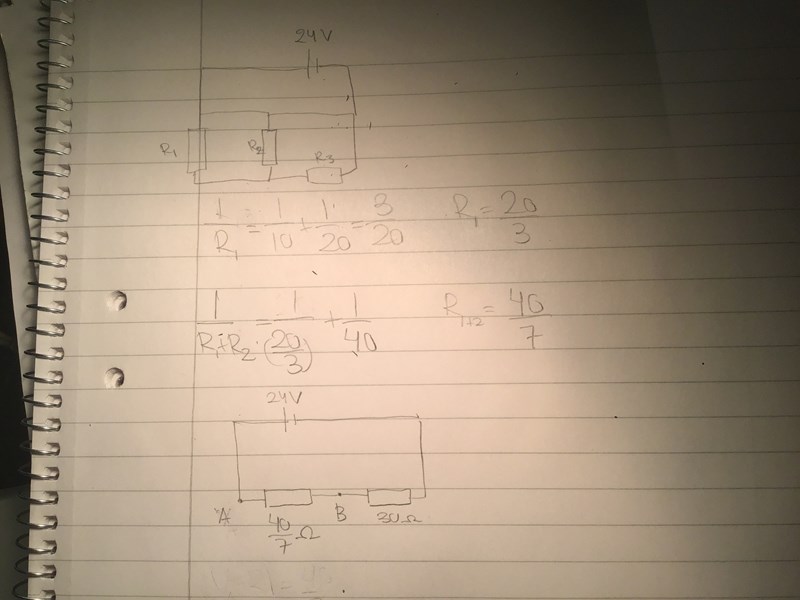 24V
R1 R2 R3
1/R1 = 1/10 + 1/20 = 3/20 R1 = 20/3
1/R1+R2 = 1/(20/3) + 1/40 R1+2 = 40/7
24V
A 40/7 Ω B 30Ω